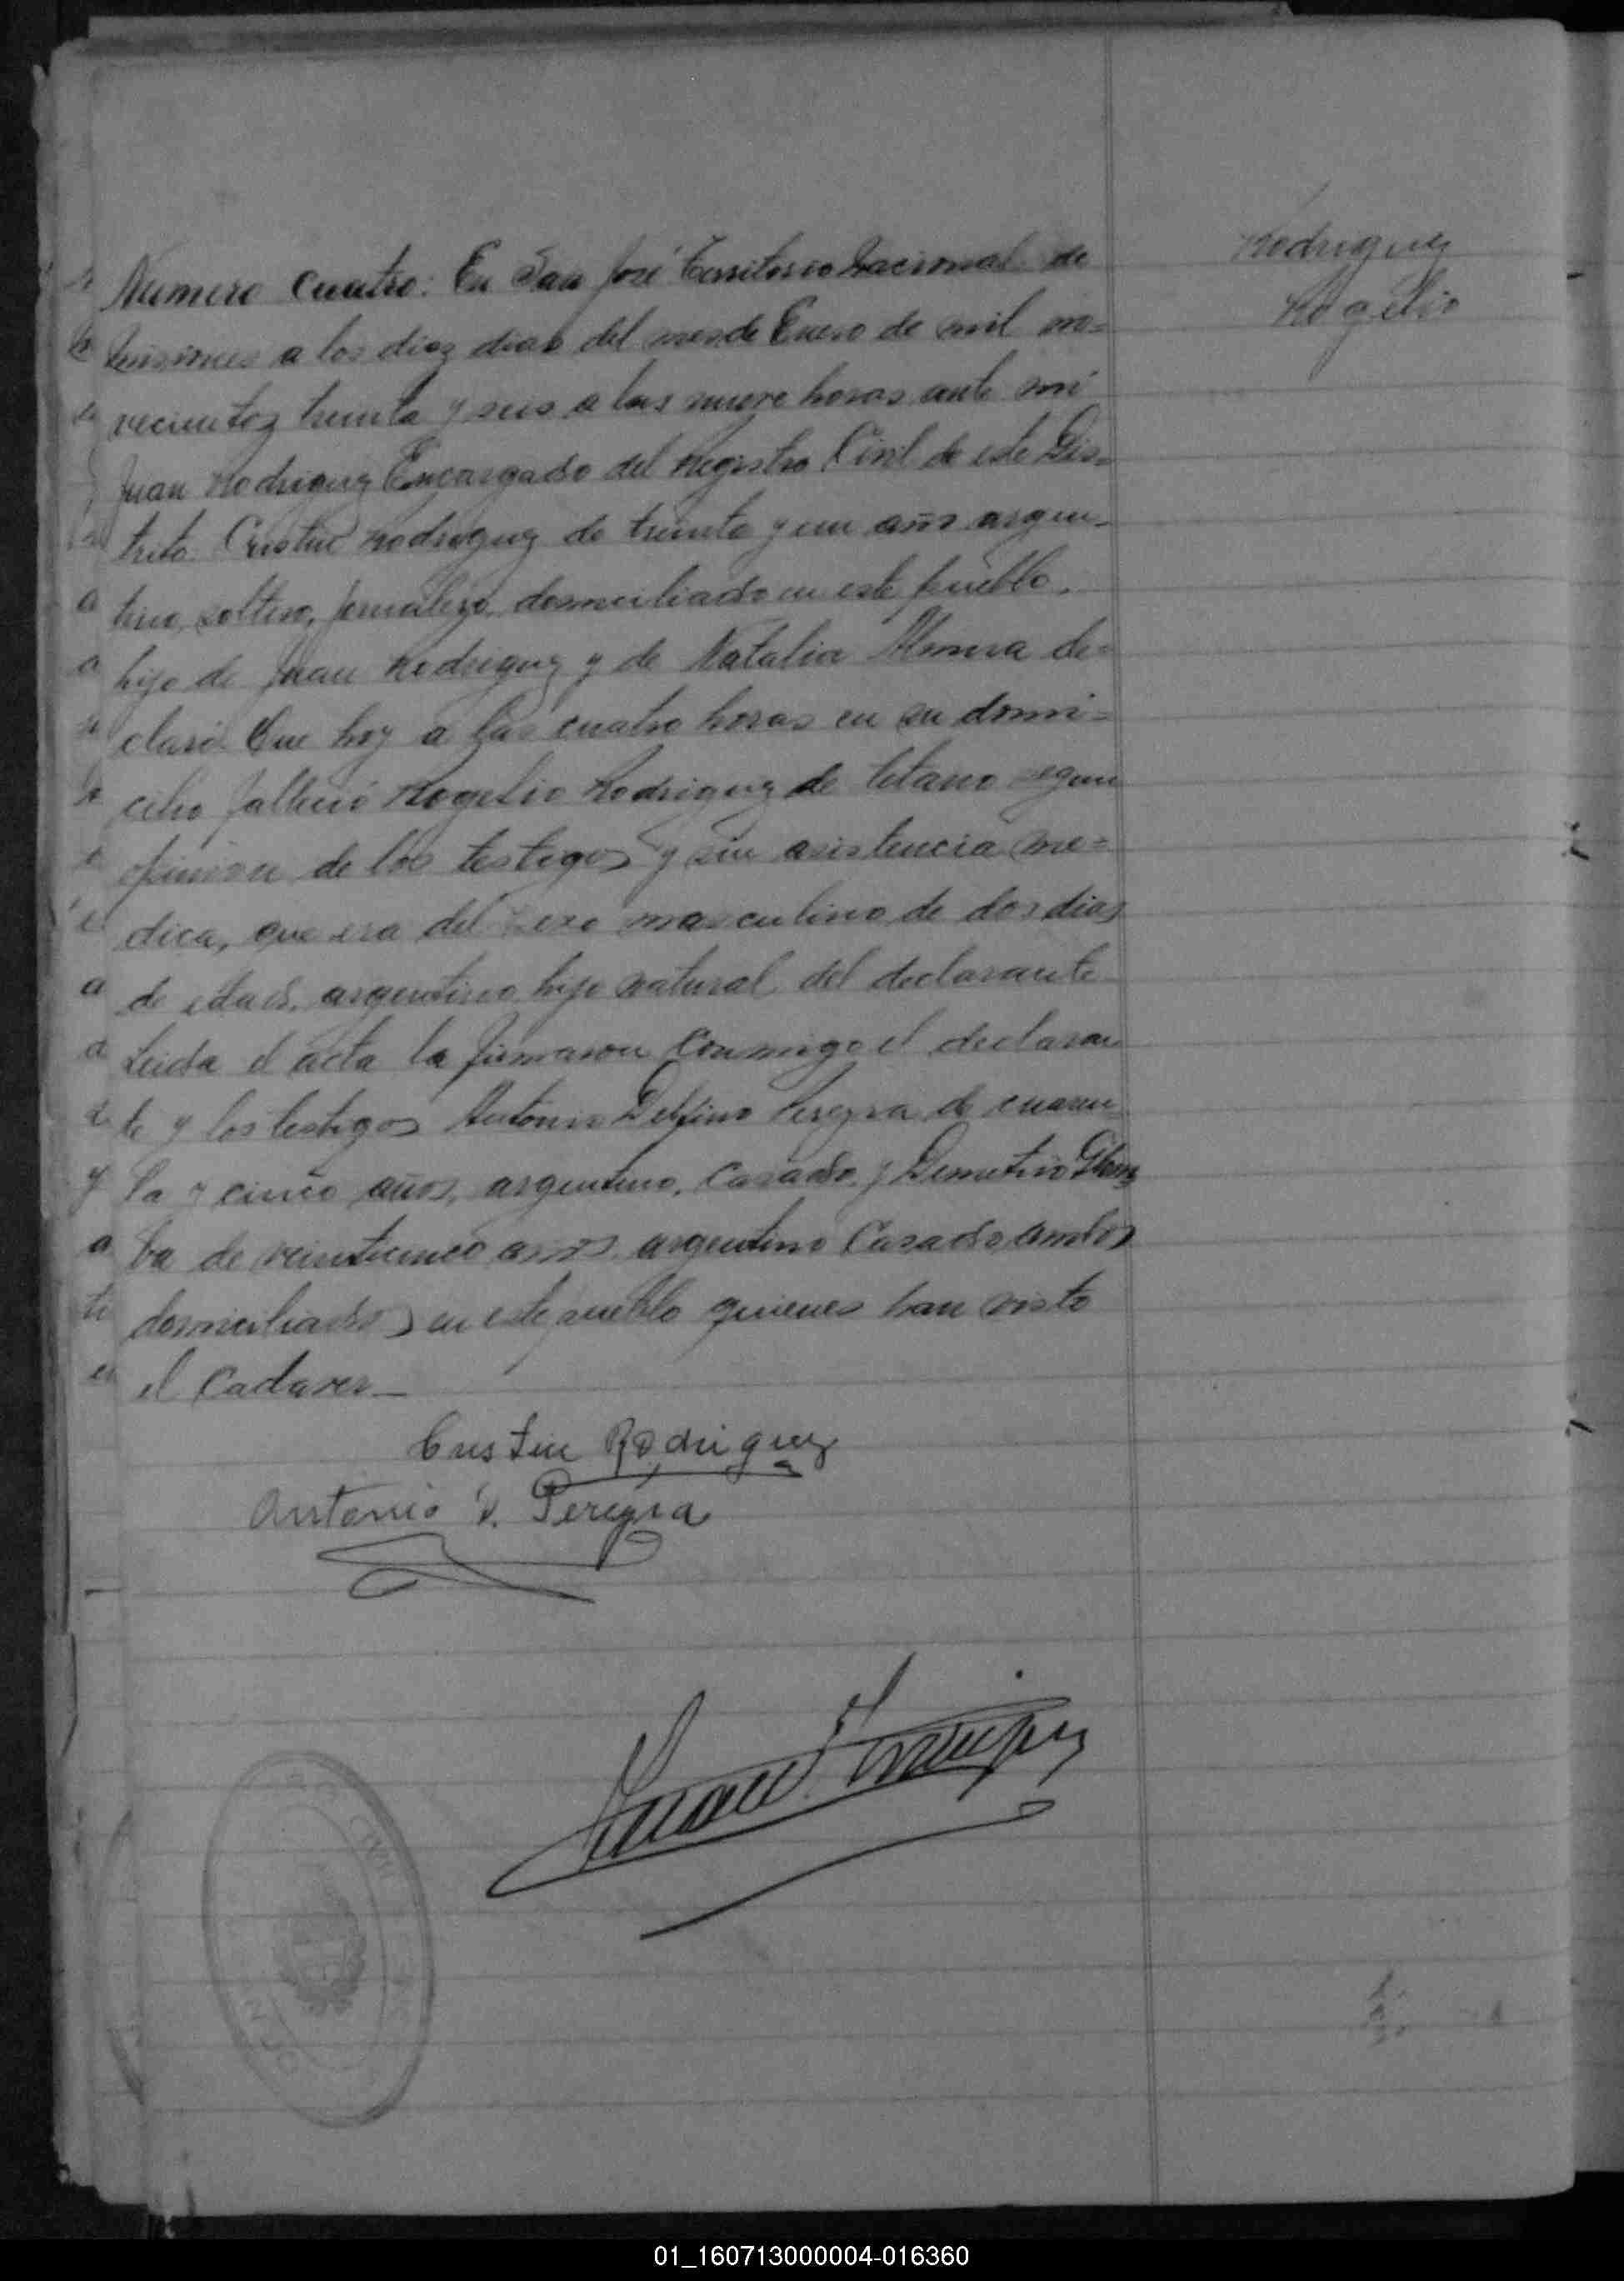 Rodriguez
Rogelio
Numero Cuatro: En San José Territorio Nacional de
Misiones a los diez dias del mes de Enero de mil no=
vecientos treinta y seis a las nueve horas ante mí
Juan Rodriguez Encargado del Registro Civil de este Dis=
trito. Rodriguez de treinta y un años argen-
tino, soltero, jornalero, domiciliado en este pueblo,
hijo de Juan Rodriguez y de Natalia de=
claró: Que hoy a las cuatro horas en su domi=
cilio falleció Rogelio Rodriguez de tétano segun
opinion de los testigos y sin asistencia me=
dica, que era del sexo masculino de dos dias
de edad, argentino hijo natural del declarante
Leida el acta la firmaron conmigo el declaran
te y los testigos Antonio Delfino Pereyra de cuaren
ta y cinco años, argentino, Casado y Demetrio
ba de veinticinco años argentino Casado, ambos
domiciliados en este pueblo quienes han visto
el Cadaver—
Rodriguez
Antonio D. Pereyra
01_160713000004-016360